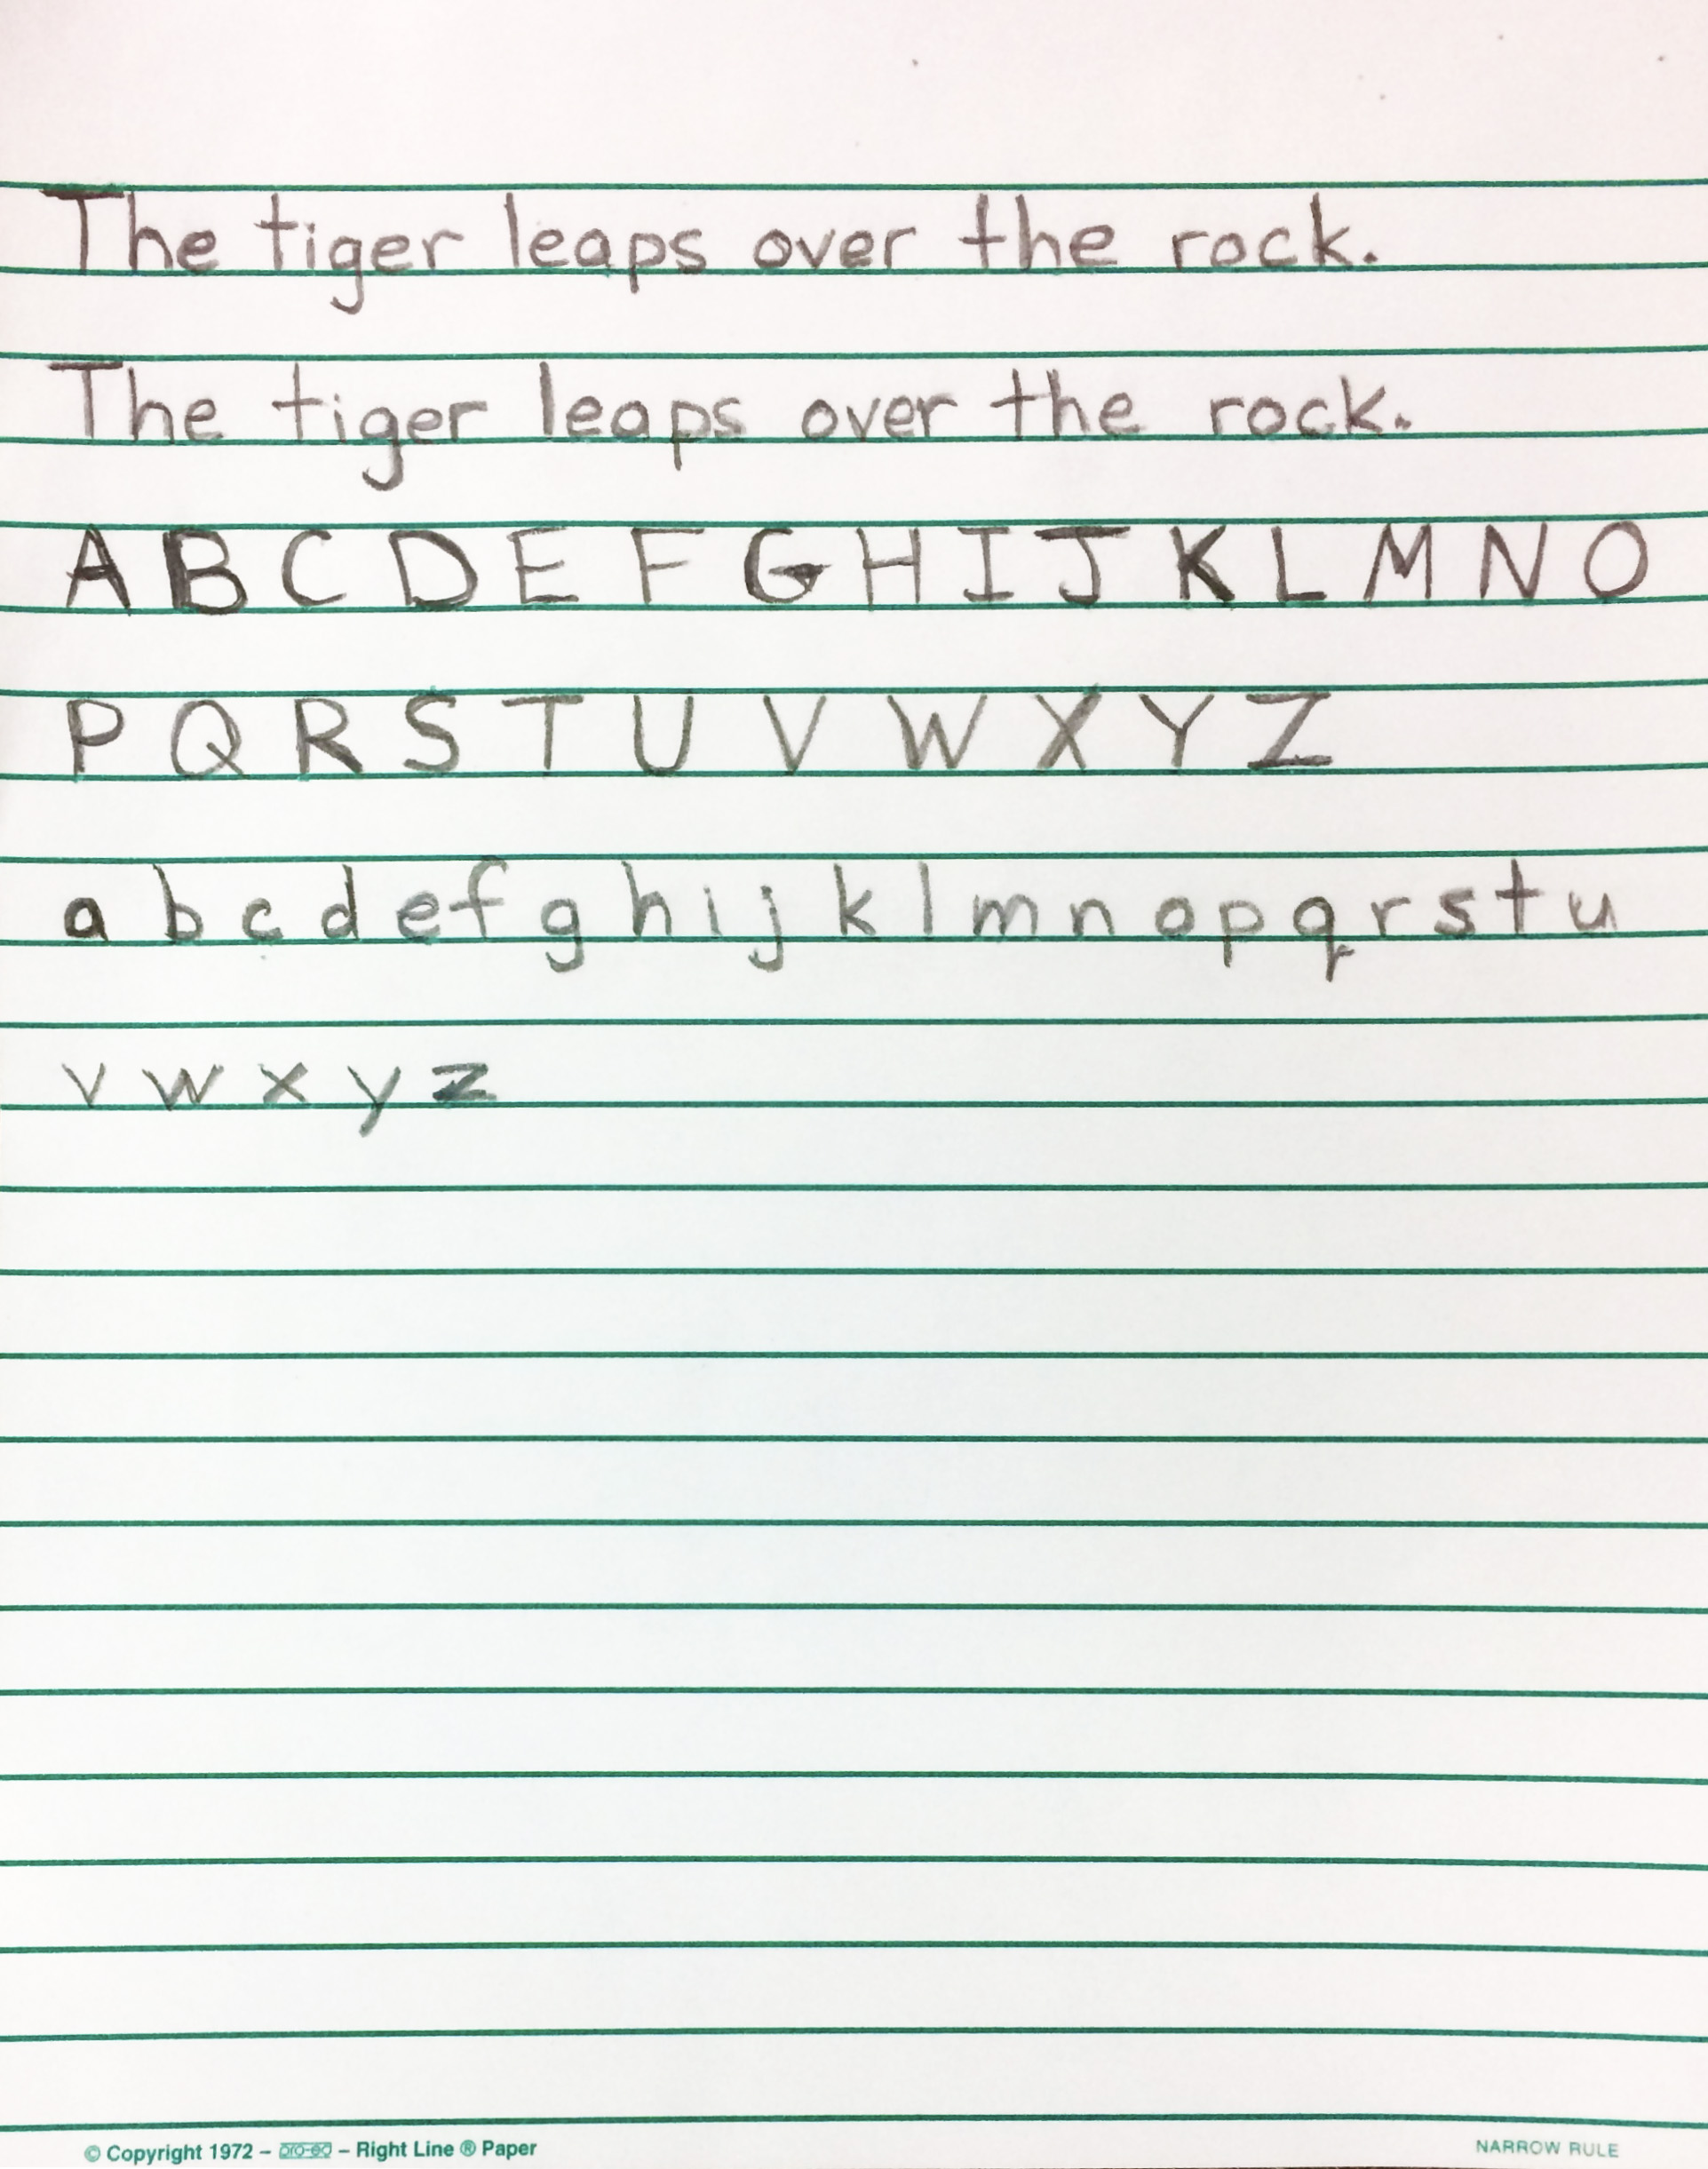 The tiger leaps over the rock.
The tiger leaps over the rock.
A B C D E F G H I J K L M N O
P Q R S T U V W X Y Z
a b c d e f g h i j k l m n o p q r s t u
v w x y z
© Copyright 1972 – pro-ed – Right Line ® Paper
NARROW RULE